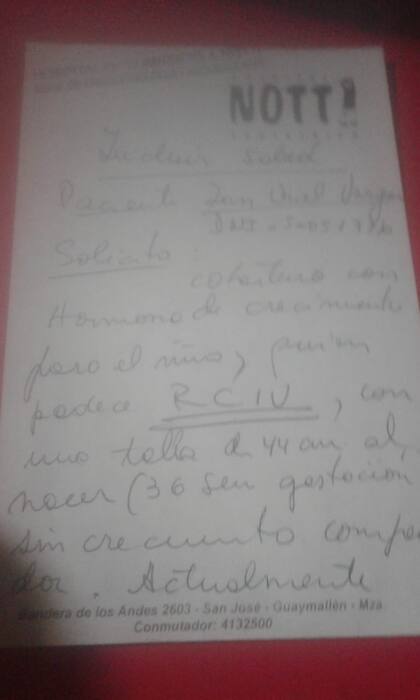 NOTTI
Incluir Salud
Paciente
DNI
Solicito:
cobertura con
Hormona de crecimiento
para el niño, quien
padece RCIU, con
una talla de 44 cm al
nacer (36 sem gestacion
sin crecimiento compensa
dor. Actualmente
Bandera de los Andes 2603 - San José - Guaymallén - Mza.
Conmutador: 4132500